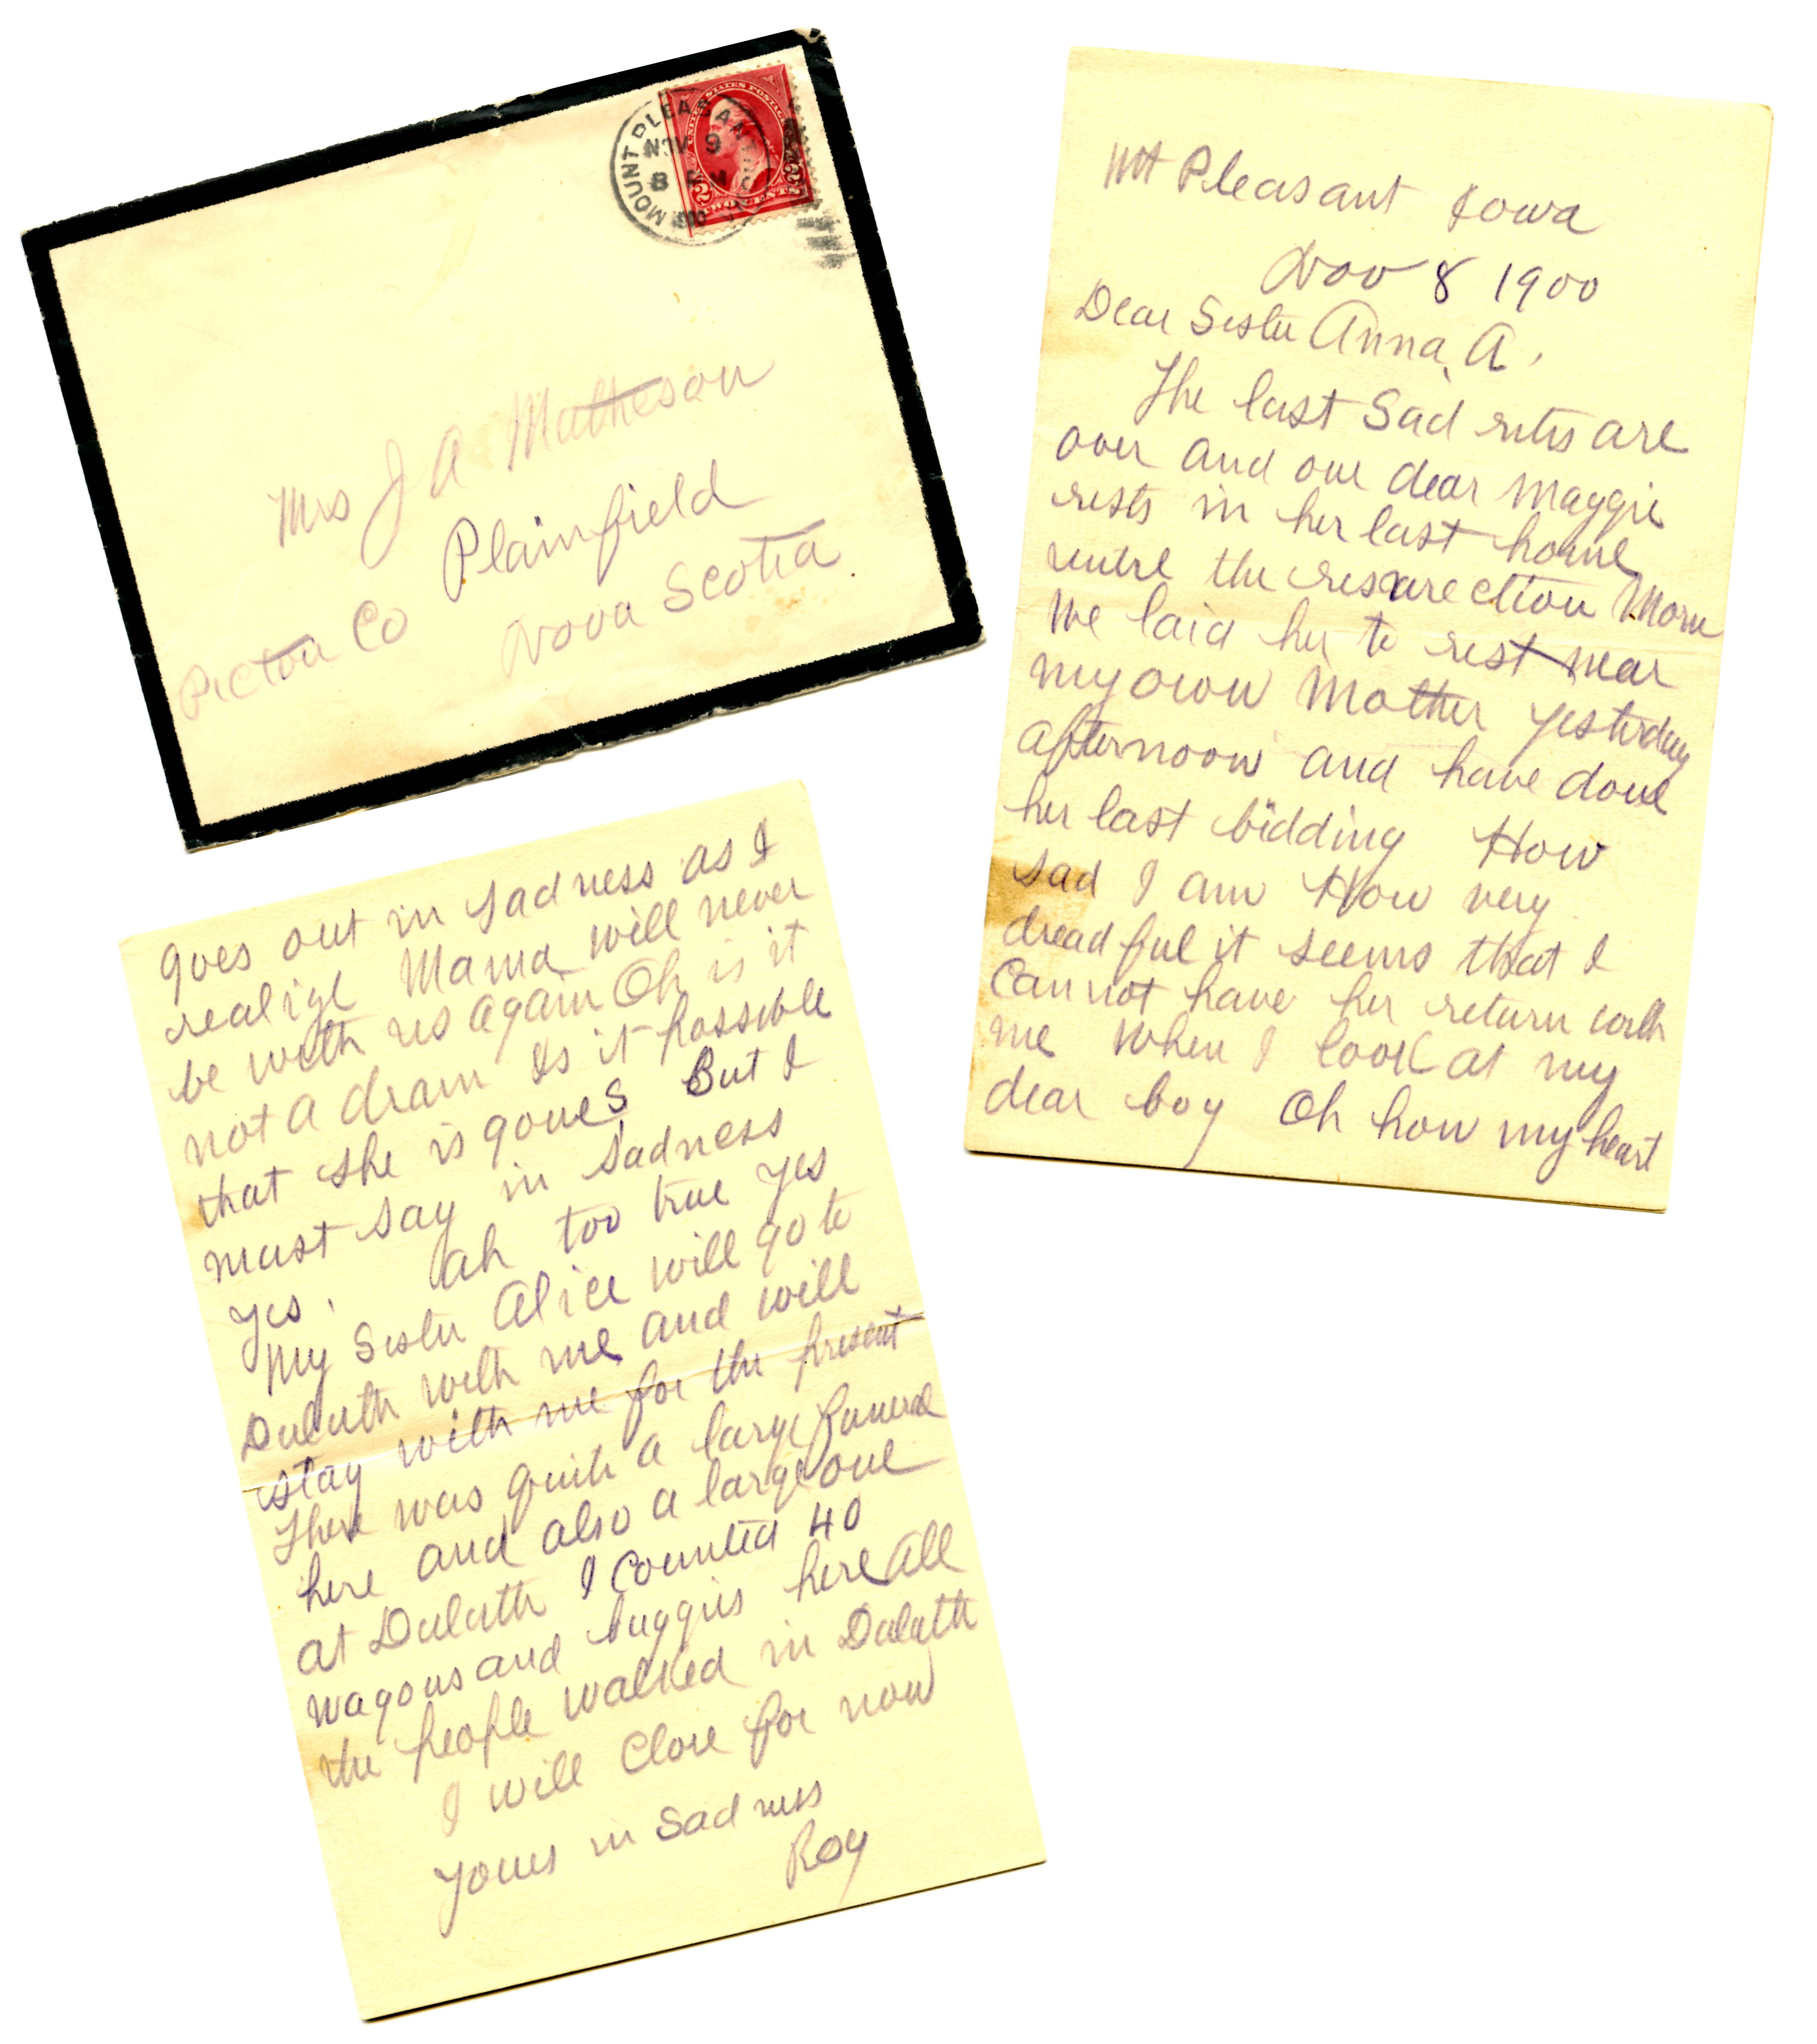 MOUNT PLEASANT
NOV 9
8 PM
UNITED STATES POSTAGE
2 2
TWO CENTS
Mrs J A Matheson
Plainfield
Pictou Co Nova Scotia
Mt Pleasant Iowa
Nov 8 1900
Dear Sister Anna A.
The last Sad rites are
over and our dear Maggie
rests in her last home
untre the resurection Morn
We laid her to rest near
my own Mother yesterday
afternoon and have done
her last bidding How
sad I am How very
dreadful it seems that I
cannot have her return with
me When I look at my
dear boy Oh how my heart
goes out in sadness as I
realize Mama will never
be with us again Oh is it
not a dram Is it possible
that she is gones But I
must say in sadness
yes. ah too true yes
My Sister Alice will go to
Duluth with me and will
stay with me for the present
There was quite a large funeral
here and also a large one
at Duluth I counted 40
wagons and buggies here all
the people walked in Duluth
I will close for now
Yours in Sadness
Roy